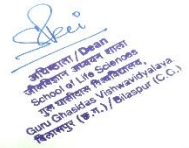 अधिष्ठाता/Dean
जीवविज्ञान अध्ययन शाला
School of Life Sciences
गुरु घासीदास विश्वविद्यालय,
Guru Ghasidas Vishwavidyalaya
बिलासपुर (छ.ग.)/Bilaspur (C.C.)